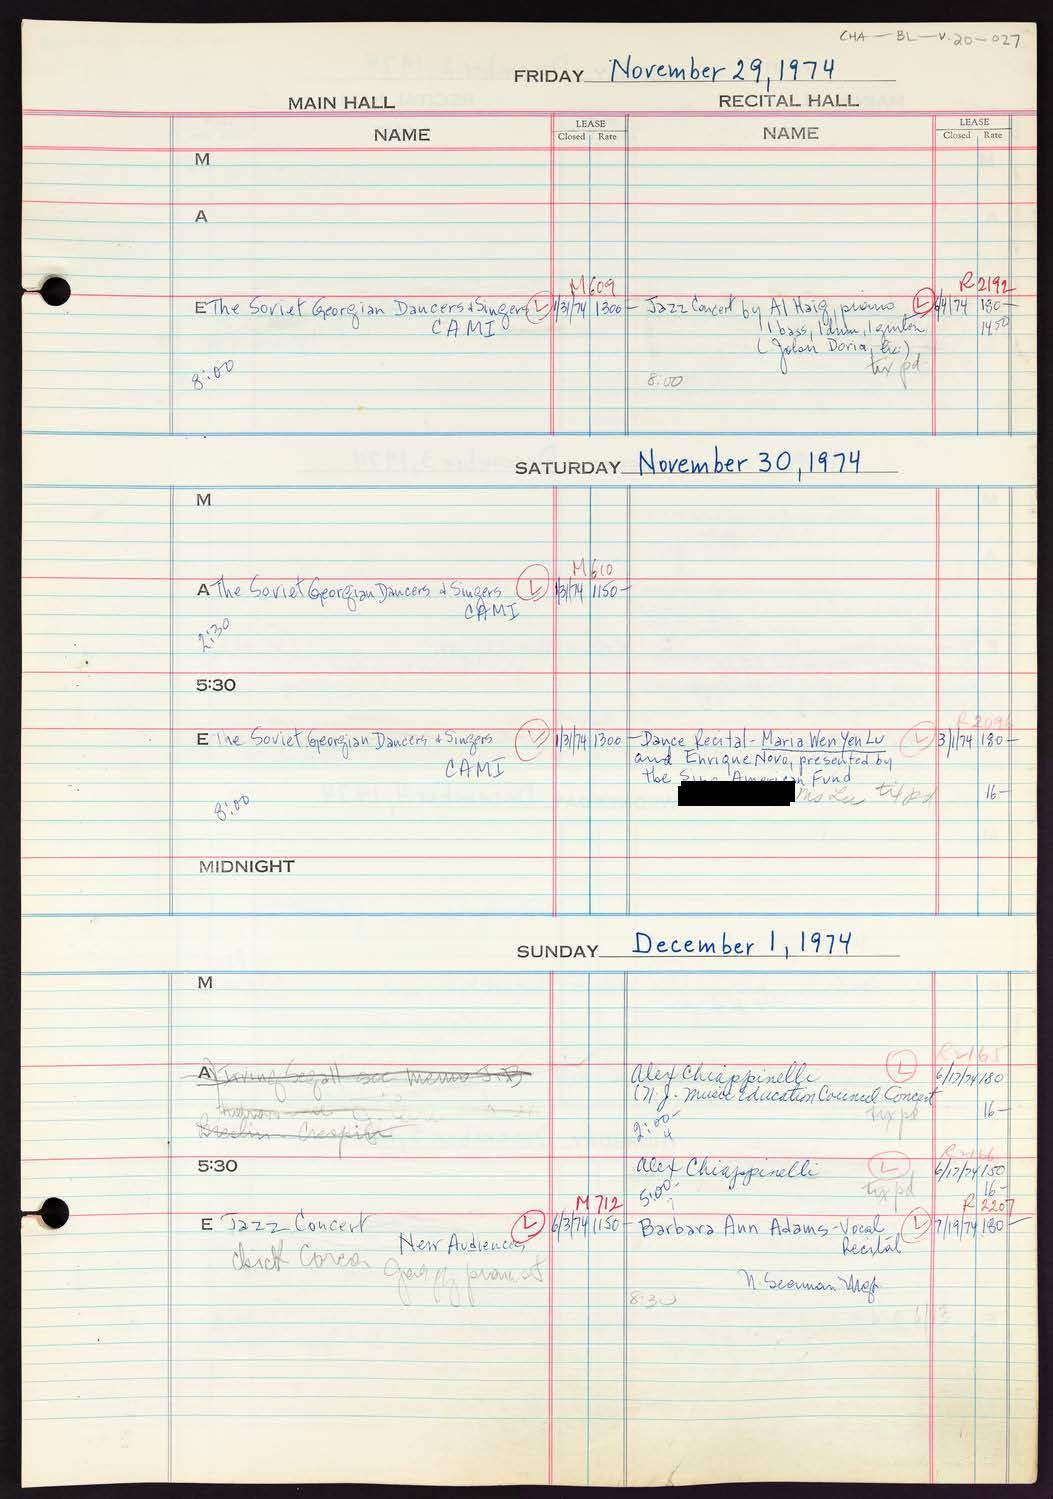 CHA-BL-V.20-027
FRIDAY November 29, 1974
MAIN HALL RECITAL HALL
NAME LEASE Closed Rate NAME LEASE Closed Rate
M
A
M609 R2192
E The Soviet Georgian Dancers & Singers L 1/31/74 1300- Jazz Concert by Al Haig, piano L 6/4/74 180-
CAMI 1 bass, 1 drum, 1 guitar 1450
(John Doria,
tix pd
8:00 8:00
SATURDAY November 30, 1974
M
M610
A The Soviet Georgian Dancers & Singers L 1/31/74 1150-
CAMI
2:30
5:30
R2096
E The Soviet Georgian Dancers & Singers L 1/31/74 1300- Dance Recital - Maria Wen Yen Lu L 3/1/74 180-
CAMI and Enrique Novo, presented by
the Sino American Fund
8:00 Ms Lu tix pd 16-
MIDNIGHT
SUNDAY December 1, 1974
M
R2165
A Irving Segall see memo Alex Chiappinelli L 6/17/74 180
(N.J. Music Education Council Concert
tix pd 16-
Breslin - Crespin 2:00-4
R2166
5:30 Alex Chiappinelli L 6/17/74 150
5:00-7 tix pd 16-
M712 R2207
E Jazz Concert L 6/3/74 1150- Barbara Ann Adams - Vocal L 7/19/74 180-
New Audiences Recital
Chick Corea
N. Seaman Mgt
8:30